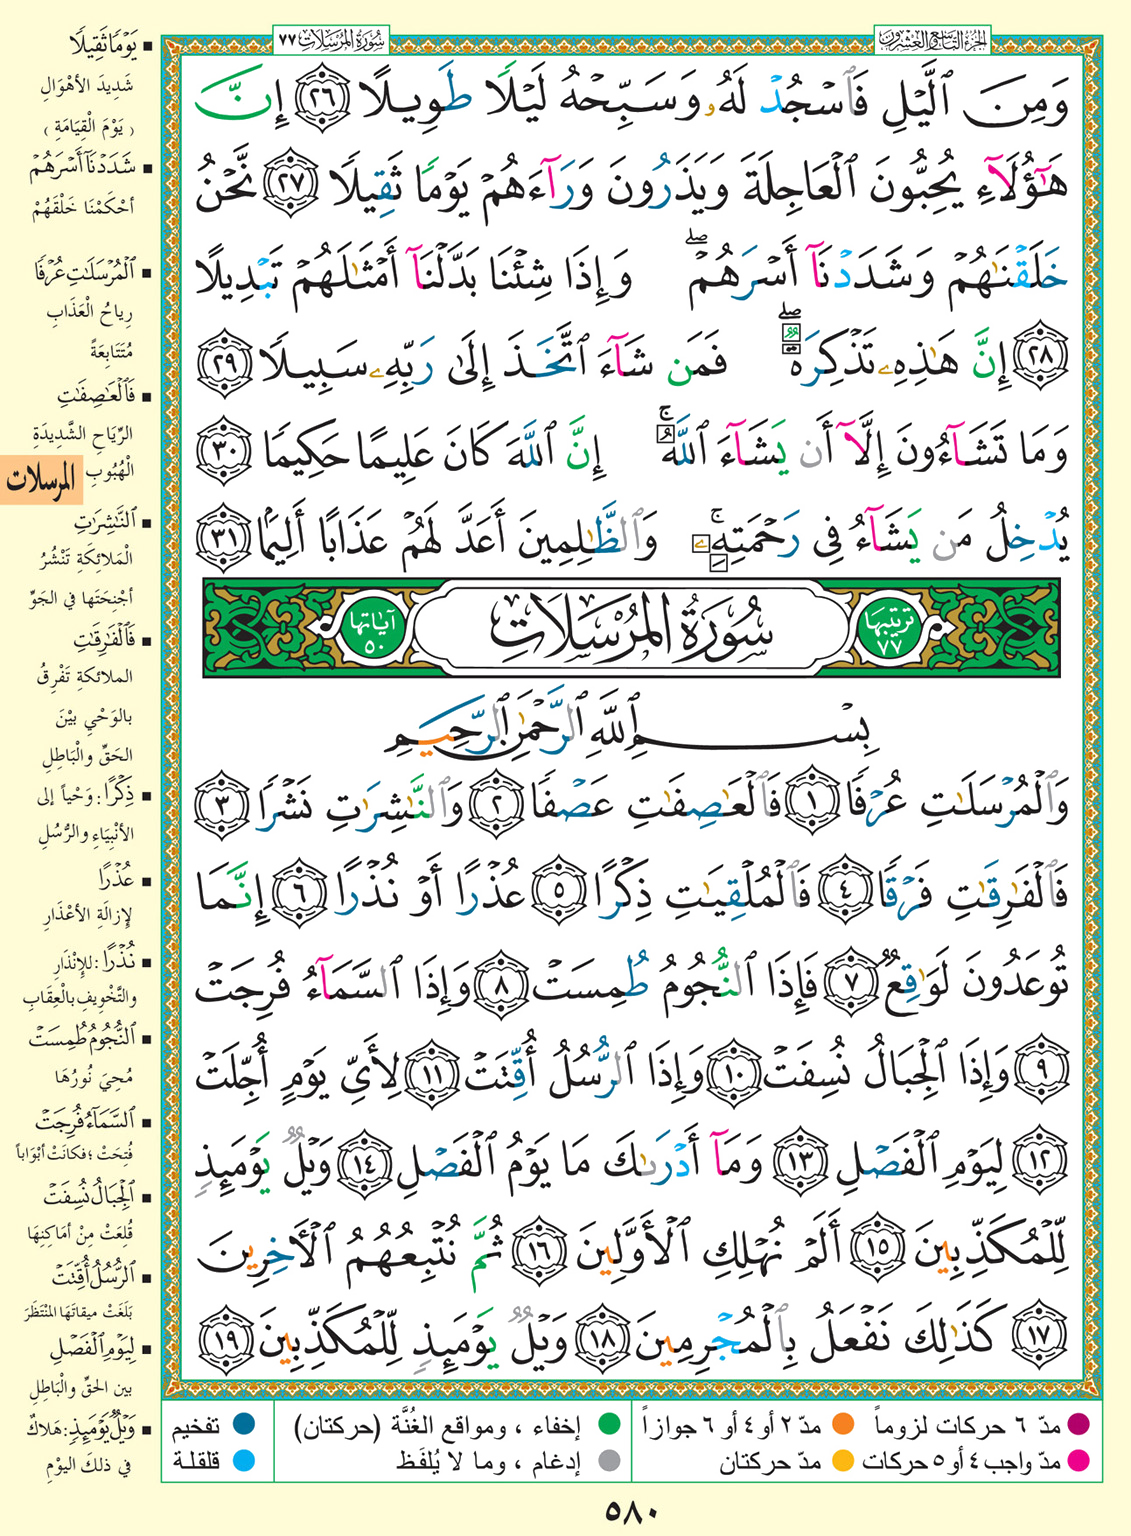 سُورَةُ المُرْسَلَات ٧٧
الجُزْءُ التَّاسِعُ وَالعِشْرُونَ
وَمِنَ ٱلَّيْلِ فَٱسْجُدْ لَهُۥ وَسَبِّحْهُ لَيْلًا طَوِيلًا ٢٦ إِنَّ
هَٰٓؤُلَآءِ يُحِبُّونَ ٱلْعَاجِلَةَ وَيَذَرُونَ وَرَآءَهُمْ يَوْمًا ثَقِيلًا ٢٧ نَّحْنُ
خَلَقْنَٰهُمْ وَشَدَدْنَآ أَسْرَهُمْ ۖ وَإِذَا شِئْنَا بَدَّلْنَآ أَمْثَٰلَهُمْ تَبْدِيلًا
٢٨ إِنَّ هَٰذِهِۦ تَذْكِرَةٌ ۖ فَمَن شَآءَ ٱتَّخَذَ إِلَىٰ رَبِّهِۦ سَبِيلًا ٢٩
وَمَا تَشَآءُونَ إِلَّآ أَن يَشَآءَ ٱللَّهُ ۚ إِنَّ ٱللَّهَ كَانَ عَلِيمًا حَكِيمًا ٣٠
يُدْخِلُ مَن يَشَآءُ فِى رَحْمَتِهِۦ ۚ وَٱلظَّٰلِمِينَ أَعَدَّ لَهُمْ عَذَابًا أَلِيمًۢا ٣١
ترتيبها ٧٧ سُورَةُ المُرْسَلَاتِ آياتها ٥٠
بِسْمِ ٱللَّهِ ٱلرَّحْمَٰنِ ٱلرَّحِيمِ
وَٱلْمُرْسَلَٰتِ عُرْفًا ١ فَٱلْعَٰصِفَٰتِ عَصْفًا ٢ وَٱلنَّٰشِرَٰتِ نَشْرًا ٣
فَٱلْفَٰرِقَٰتِ فَرْقًا ٤ فَٱلْمُلْقِيَٰتِ ذِكْرًا ٥ عُذْرًا أَوْ نُذْرًا ٦ إِنَّمَا
تُوعَدُونَ لَوَٰقِعٌ ٧ فَإِذَا ٱلنُّجُومُ طُمِسَتْ ٨ وَإِذَا ٱلسَّمَآءُ فُرِجَتْ
٩ وَإِذَا ٱلْجِبَالُ نُسِفَتْ ١٠ وَإِذَا ٱلرُّسُلُ أُقِّتَتْ ١١ لِأَىِّ يَوْمٍ أُجِّلَتْ
١٢ لِيَوْمِ ٱلْفَصْلِ ١٣ وَمَآ أَدْرَىٰكَ مَا يَوْمُ ٱلْفَصْلِ ١٤ وَيْلٌ يَوْمَئِذٍ
لِّلْمُكَذِّبِينَ ١٥ أَلَمْ نُهْلِكِ ٱلْأَوَّلِينَ ١٦ ثُمَّ نُتْبِعُهُمُ ٱلْءَاخِرِينَ
١٧ كَذَٰلِكَ نَفْعَلُ بِٱلْمُجْرِمِينَ ١٨ وَيْلٌ يَوْمَئِذٍ لِّلْمُكَذِّبِينَ ١٩
يَوْمًا ثَقِيلًا
شَدِيدَ الأهْوَالِ
( يَوْمَ الْقِيَامَةِ )
شَدَدْنَآ أَسْرَهُمْ
أحْكَمْنَا خَلْقَهُمْ
ٱلْمُرْسَلَٰتِ عُرْفًا
رِياحُ الْعَذَابِ
مُتَتَابِعَةً
فَٱلْعَٰصِفَٰتِ
الرِّيَاحِ الشَّدِيدَةِ
الْهُبُوبِ
المرسلات
ٱلنَّٰشِرَٰتِ
الْمَلائِكَةِ تَنْشُرُ
أجْنِحَتَها في الجَوِّ
فَٱلْفَٰرِقَٰتِ
الملائكةِ تَفْرِقُ
بالوَحْيِ بيْنَ
الحَقِّ والْبَاطِلِ
ذِكْرًا : وَحْياً إلى
الأنْبِيَاءِ والرُّسُلِ
عُذْرًا
لإِزالَةِ الأعْذَارِ
نُذْرًا : للإنْذَارِ
والتَّخْوِيفِ بالْعِقَابِ
ٱلنُّجُومُ طُمِسَتْ
مُحِيَ نُورُهَا
ٱلسَّمَآءُ فُرِجَتْ
فُتِحَتْ ؛ فكانَتْ أبْوَاباً
ٱلْجِبَالُ نُسِفَتْ
قُلِعَتْ مِنْ أمَاكِنِهَا
ٱلرُّسُلُ أُقِّتَتْ
بَلَغَتْ ميقاتَهَا المُنْتَظَرَ
لِيَوْمِ ٱلْفَصْلِ
بين الحَقِّ والْبَاطِلِ
وَيْلٌ يَوْمَئِذٍ : هَلاكٌ
في ذلكَ اليوْمِ
مدّ ٦ حركات لزوماً مدّ ٢ أو ٤ أو ٦ جوازاً إخفاء ، ومواقع الغُنَّة (حركتان) تفخيم
مدّ واجب ٤ أو ٥ حركات مدّ حركتان إدغام ، وما لا يُلفَظ قلقلة
٥٨٠